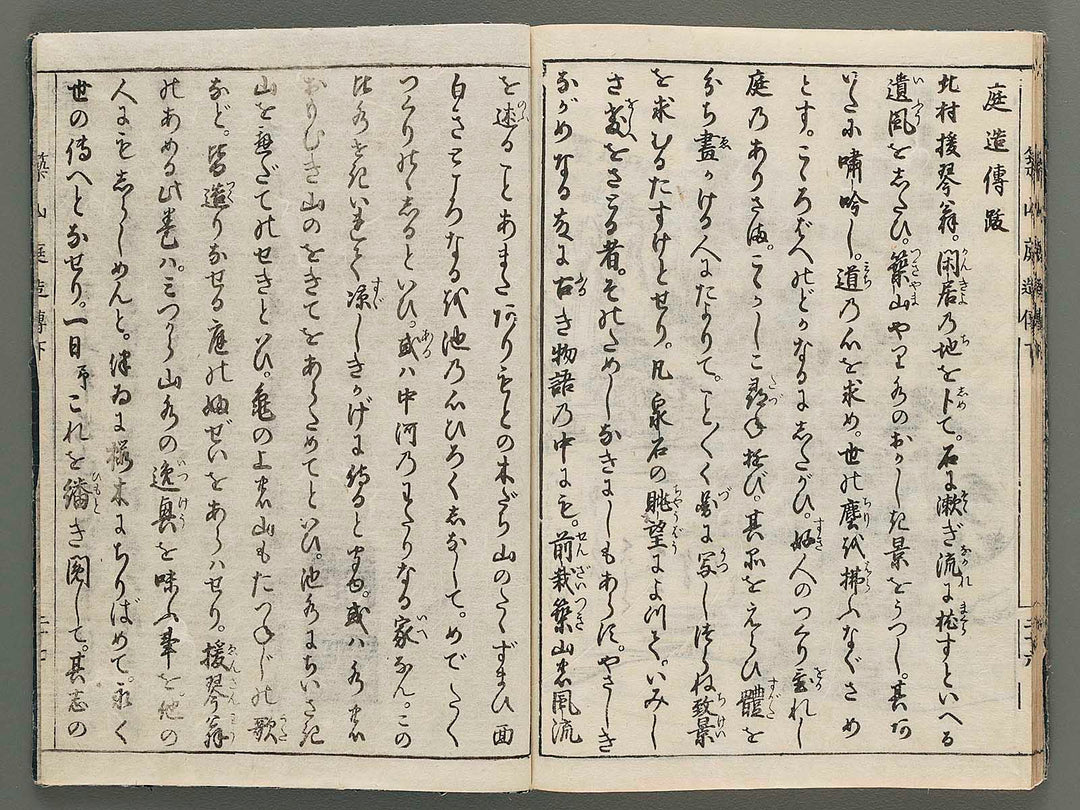 庭造傳跋
北村援琴翁。閑居乃地を卜て。石に漱ぎ流に枕すといへる
遺風をしたひ。築山やり水のおかしき景をうつし。其
に嘯吟し。道乃心を求め。世の塵を拂ふなぐさめ
とす。こゝろばへのどかなるにしたがひ。好人のつくり置れし
庭乃ありさま。こゝかしこ尋ね遊び。其品をえらひ體を
わかち畫かける人にたよりて。ことごとく圖に写し致景
を求むるたすけとせり。凡泉石の眺望によつて。いみしき
さかへをさとる者。そのためしなきにしもあらず。やさしき
ながめなる故に古き物語乃中にも。前栽築山は風流
を述ることあまたありもとの木だち山のたゝずまひ面
白きところなるを池乃心ひろくしなして。めでたく
つくりのゝしるといひ。或ハ中河乃わたりなる家なん。この
比水せき入れて涼しきかげに侍ると也。或ハ水は
おもむき山のをきてをあらためてといひ。池水にちいさき
山をへだてのせきといひ。亀の上は山もたづねじの歌
など。皆造りなせる庭のふぜいをあらハせり。援琴翁
のあめる此巻ハ。みつから山水の逸興を味ふ事を。他の
人にもしらしめんと。つゐに櫻木にちりばめて。永く
世の傳へとなせり。一日予これを繙き閲して。其志の
築山庭造傳下
築山庭造傳下